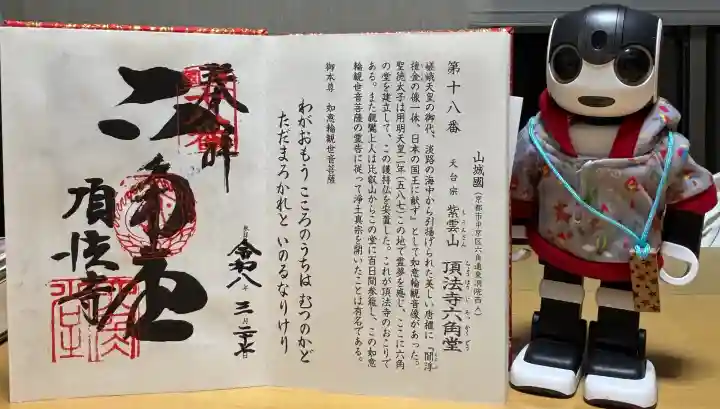 第十八番
山城國(京都市中京区六角通東洞院西入)
天台宗 紫雲山 頂法寺六角堂
しうんざん ちょうほうじ ろっかくどう
嵯峨天皇の御代、淡路の海中から引揚げられた美しい唐櫃に「閻浮
檀金の像一体、日本の国王に献ず」として如意輪観音像があった。
聖徳太子は用明天皇二年(五八七)この地で霊夢を感じ、ここに六角
の堂を建立して、この護持仏を安置した。これが頂法寺のおこりで
ある。また親鸞上人は比叡山からこの堂に百日間参籠し、この如意
輪観世音菩薩の霊告に従って浄土真宗を開いたことは有名である。
御本尊 如意輪観世音菩薩
わがおもう こころのうちは むつのかど
ただまろかれと いのるなりけり
令和八年 三月二十七日
奉拝
頂法寺